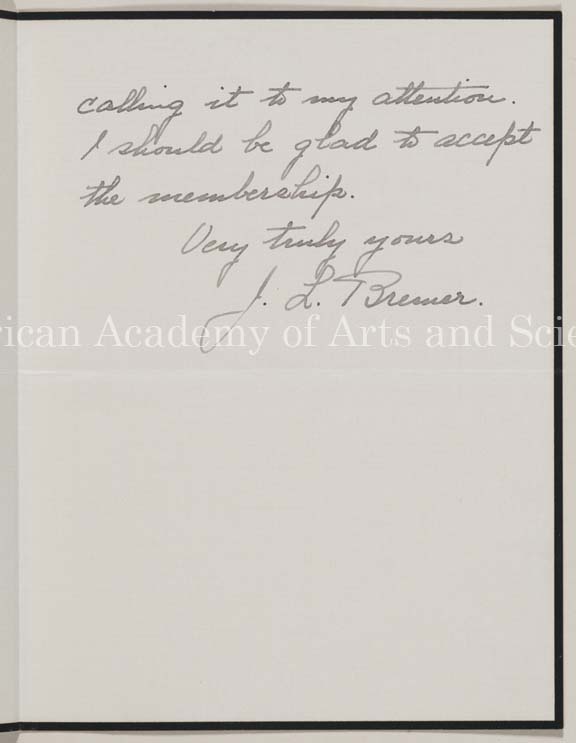 calling it to my attention.
I should be glad to accept
the membership.
Very truly yours
J. L. Bremer.
rican Academy of Arts and Scie